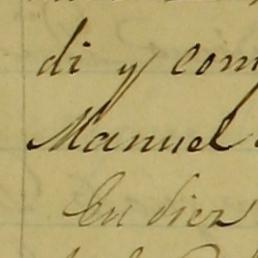 di y com
Manuel
En diez